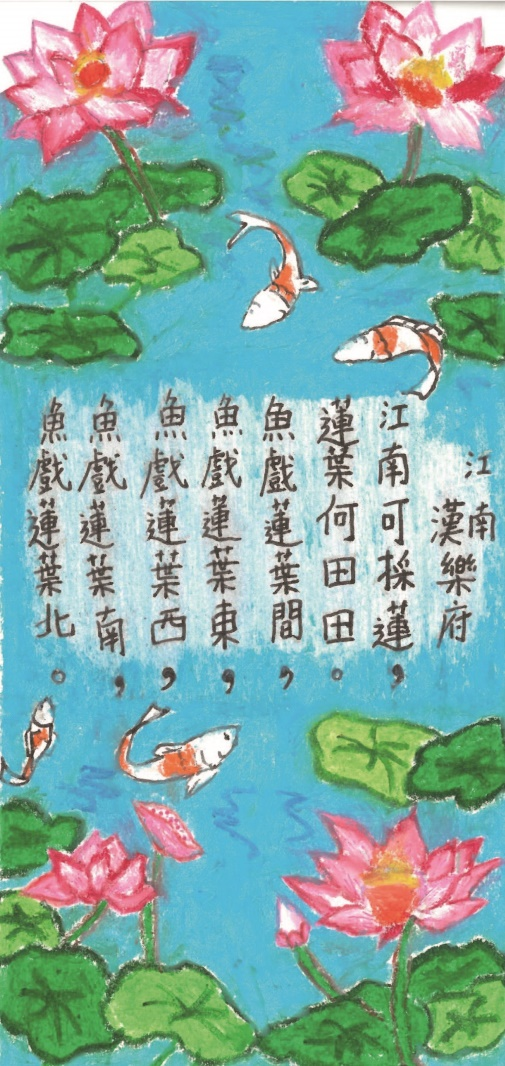 江南
漢樂府
江南可採蓮，
蓮葉何田田。
魚戲蓮葉間，
魚戲蓮葉東，
魚戲蓮葉西，
魚戲蓮葉南，
魚戲蓮葉北。